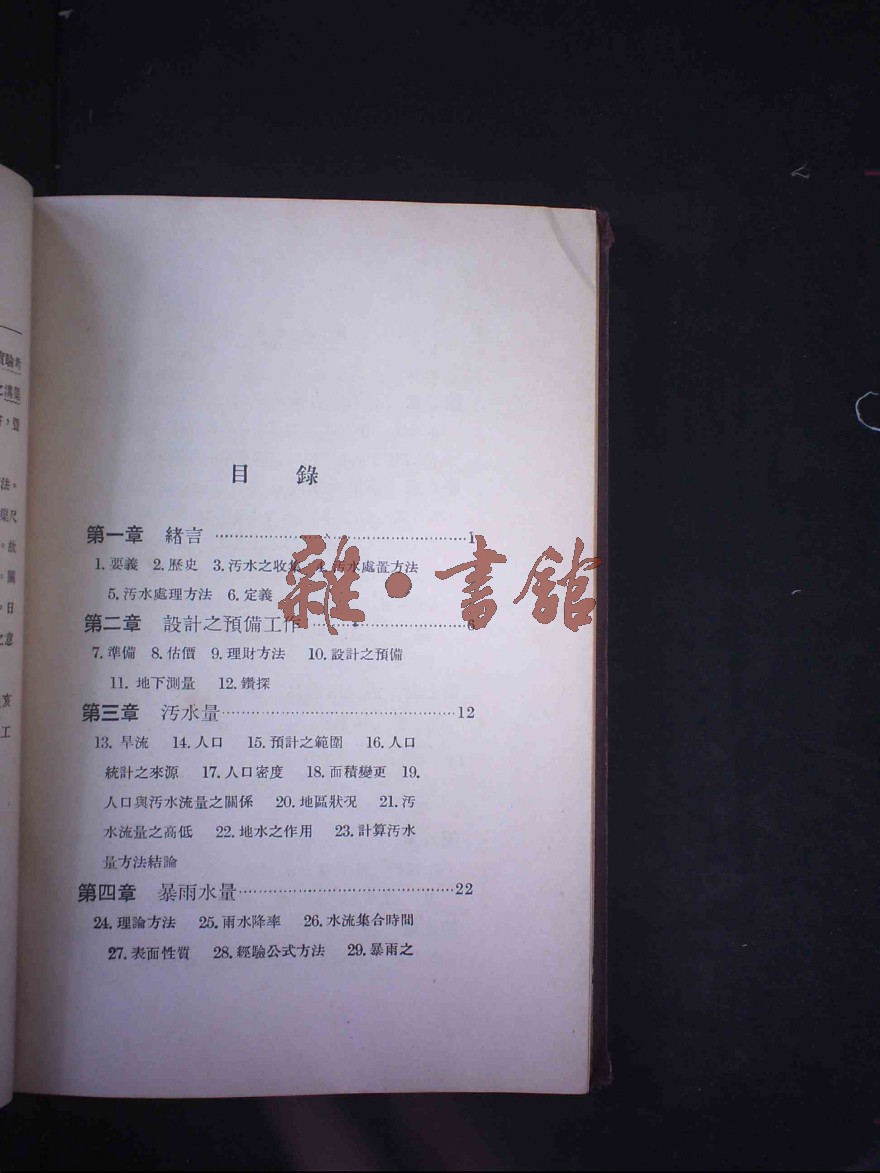 目錄
第一章 緒言 1
1. 要義 2. 歷史 3. 汚水之收集 4. 汚水處置方法
5. 汚水處理方法 6. 定義
第二章 設計之預備工作 6
7. 準備 8. 估價 9. 理財方法 10. 設計之預備
11. 地下測量 12. 鑽探
第三章 汚水量 12
13. 旱流 14. 人口 15. 預計之範圍 16. 人口
統計之來源 17. 人口密度 18. 面積變更 19.
人口與汚水流量之關係 20. 地區狀况 21. 汚
水流量之高低 22. 地水之作用 23. 計算汚水
量方法結論
第四章 暴雨水量 22
24. 理論方法 25. 雨水降率 26. 水流集合時間
27. 表面性質 28. 經驗公式方法 29. 暴雨之
雜·書館